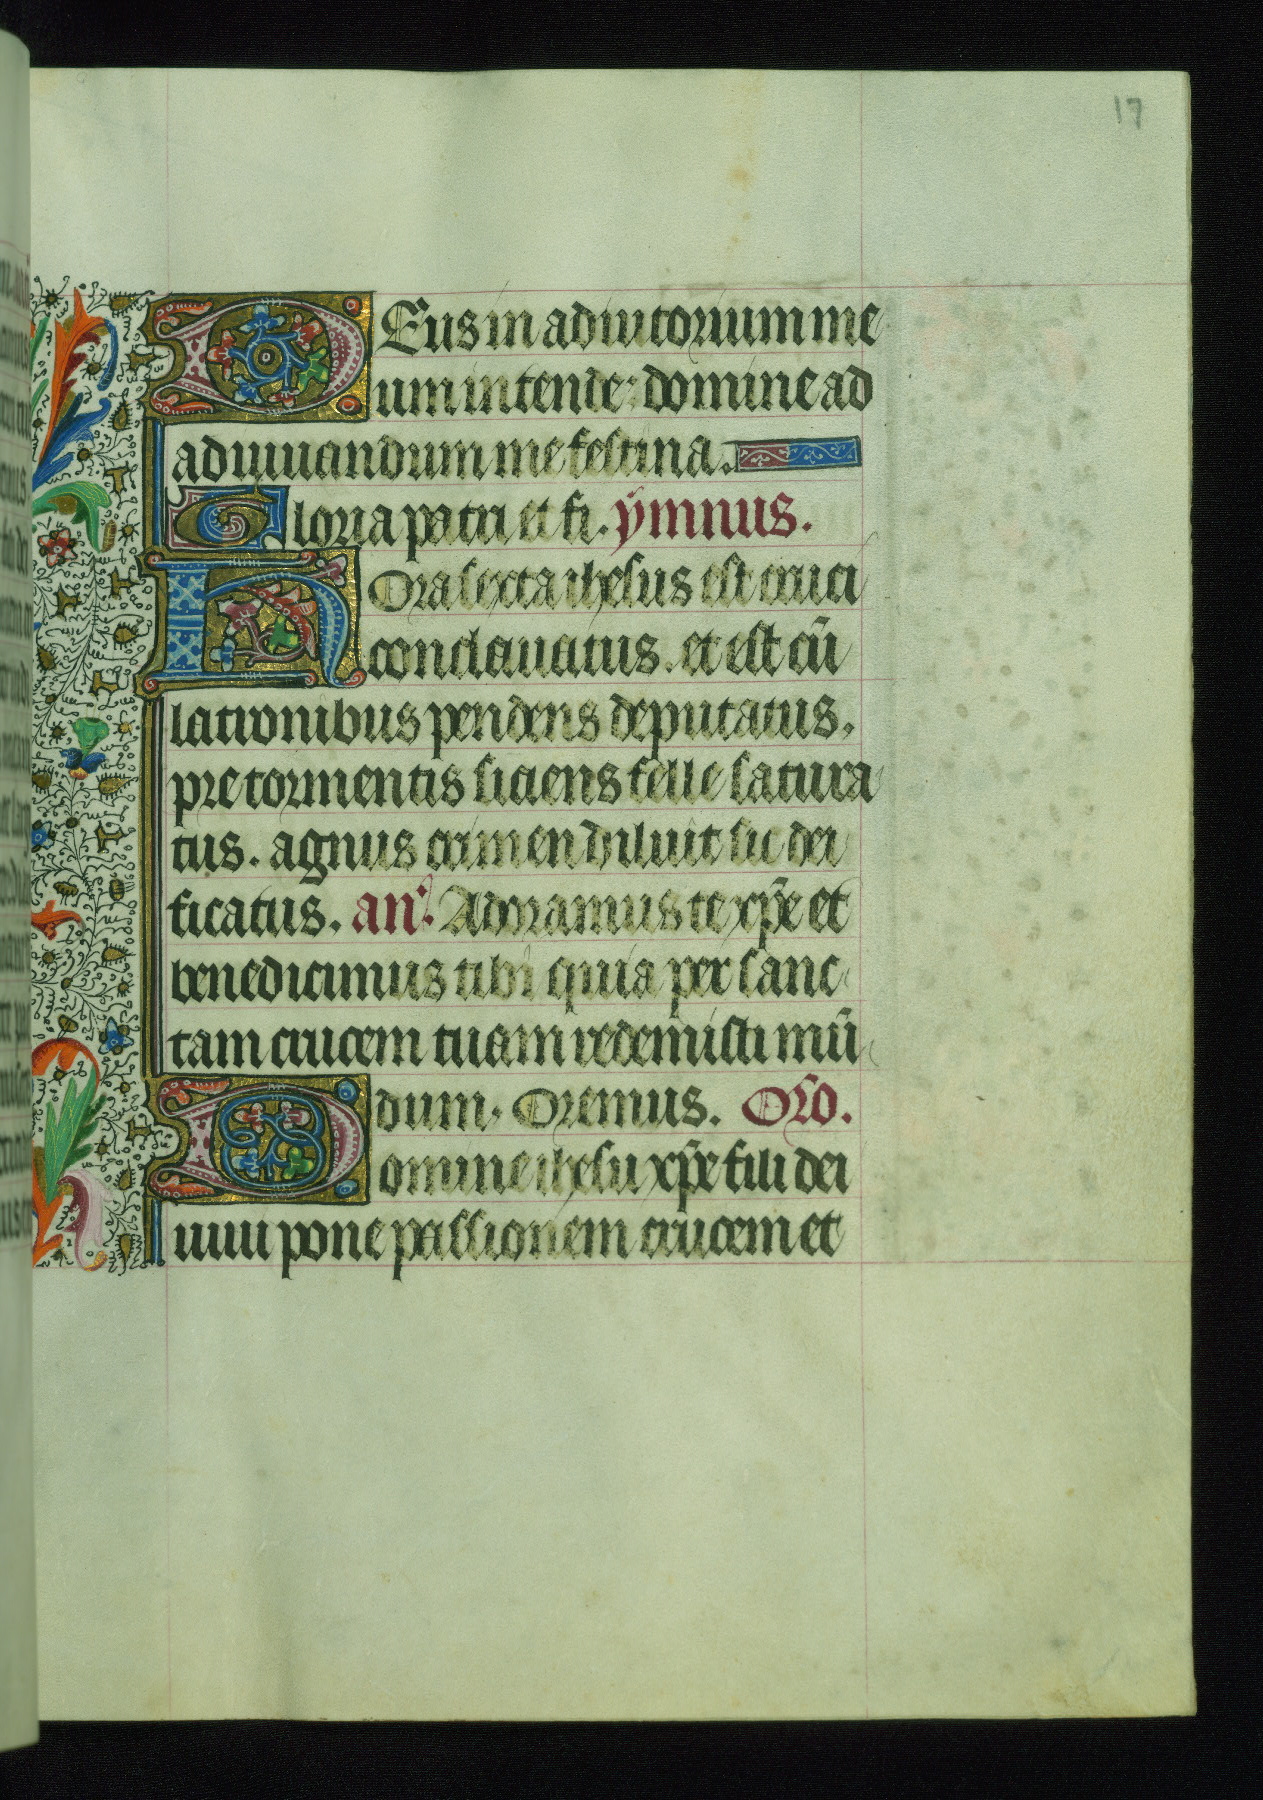 17
DEus in adiutorium me
um intende: domine ad
adiuuandum me festina.
Gloria patri et fi. ẏmnus.
HOra sexta ihesus est cruci
conclauatus. et est cū
latronibus pendens deputatus.
pre tormentis siciens felle satura
tus. agnus crimen diluit sic dei
ficatus. an̄. Adoramus te xp̄e et
benedicimus tibi quia per sanc
tam crucem tuam redemisti mū
dum. Oremus. Oro.
Domine ihesu xp̄e fili dei
uiui pone passionem crucem et